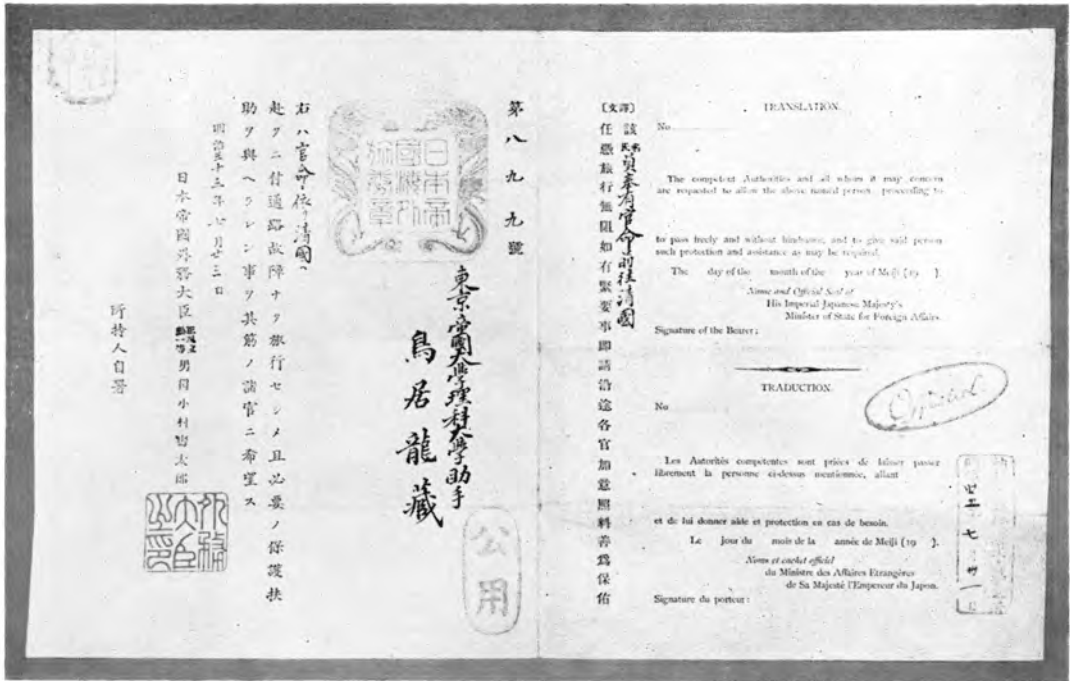 第八九九號
日本帝
國海外
旅券章
東京帝國大學理科大學助手
鳥居龍藏
公用
右ハ官命ニ依リ清國ヘ
赴クニ付通路故障ナク旅行セシメ且必要ノ保護扶
助ヲ與ヘラレン事ヲ其筋ノ諸官ニ希望ス
明治 十三年七月廿三日
日本帝國外務大臣 男爵小村壽太郎
外務
大臣
之印
所持人自署
〔譯文〕
該 員奉有官命前往清國
任憑旅行無阻如有緊要事即請沿途各官加意照料善爲保佑
TRANSLATION.
No
The competent Authorities and all whom it may concern
are requested to allow the above named person proceeding to
to pass freely and without hindrance, and to give said person
such protection and assistance as may be required.
The day of the month of the year of Meiji (19 ).
Name and Official Seal of
His Imperial Japanese Majesty's
Minister of State for Foreign Affairs.
Signature of the Bearer:
TRADUCTION.
Official.
No
Les Autorités compétentes sont priées de laisser passer
librement la personne ci-dessus mentionnée, allant
et de lui donner aide et protection en cas de besoin.
Le jour du mois de la année de Meiji (19 ).
Nom et cachet officiel
du Ministre des Affaires Etrangères
de Sa Majesté l'Empereur du Japon.
Signature du porteur: